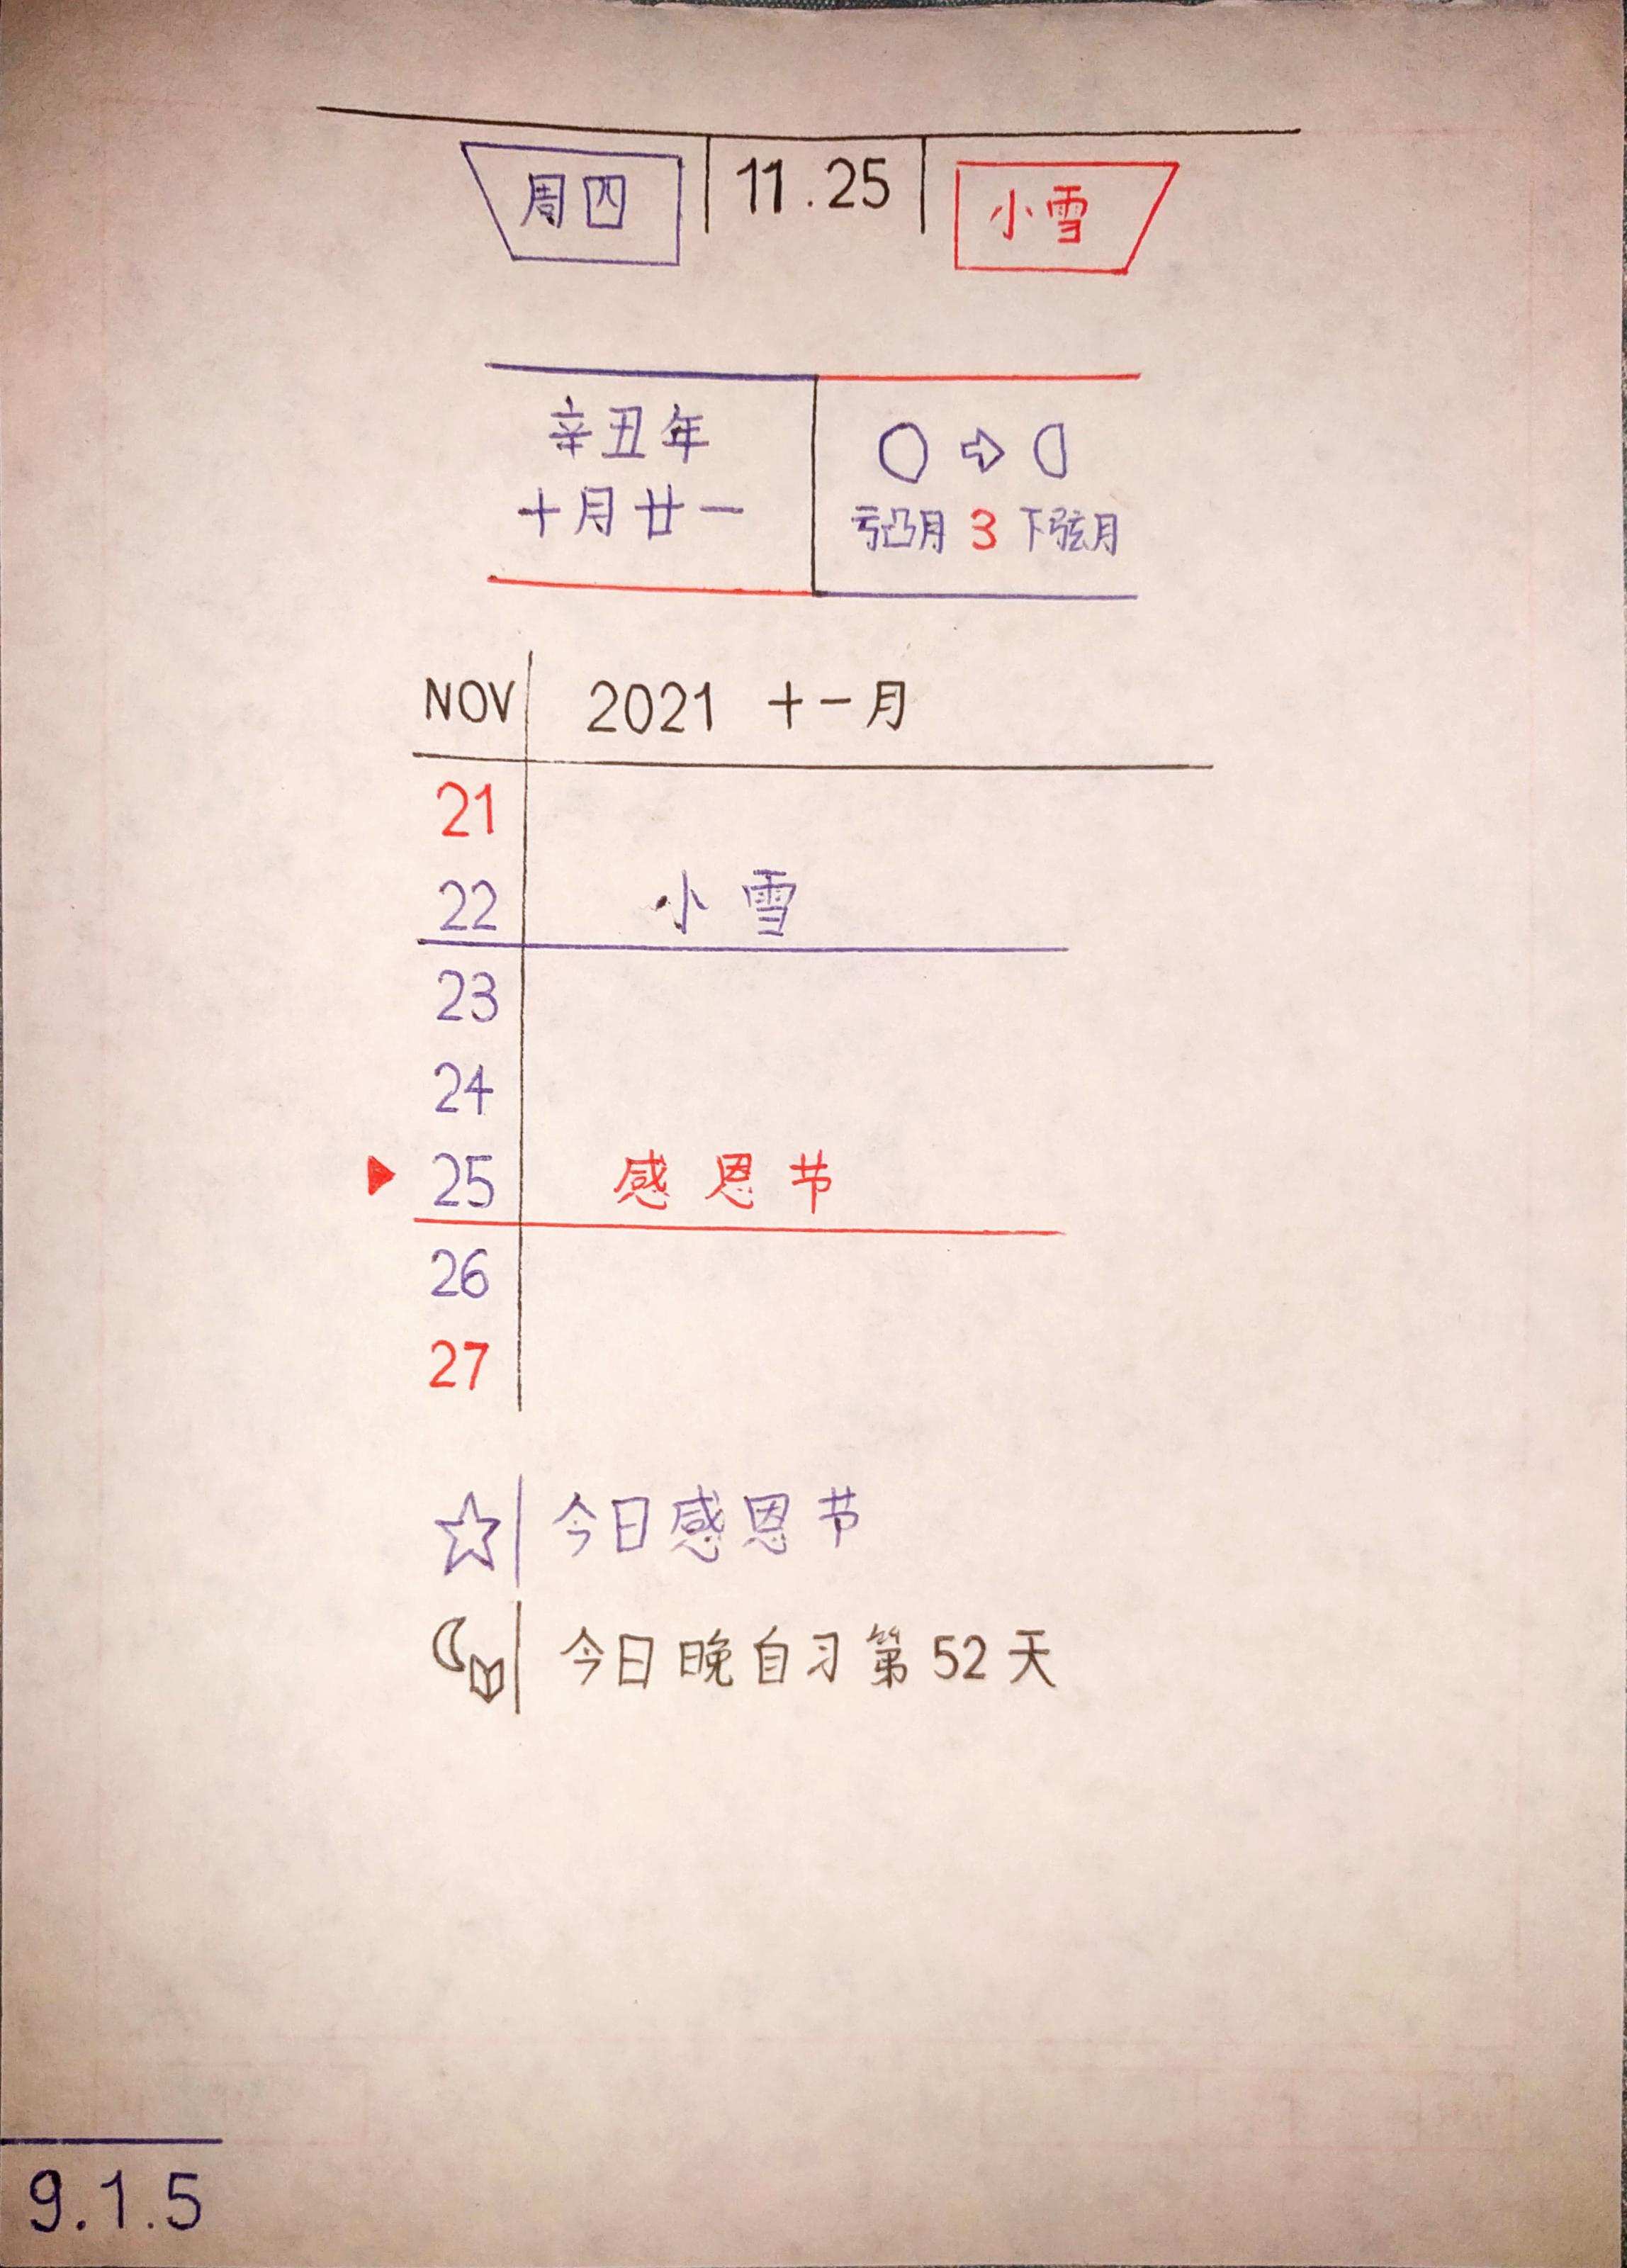 周四 11.25 小雪
辛丑年
十月廿一
亏凸月 3 下弦月
NOV 2021 十一月
21
22 小雪
23
24
25 感恩节
26
27
今日感恩节
今日晚自习第52天
9.1.5